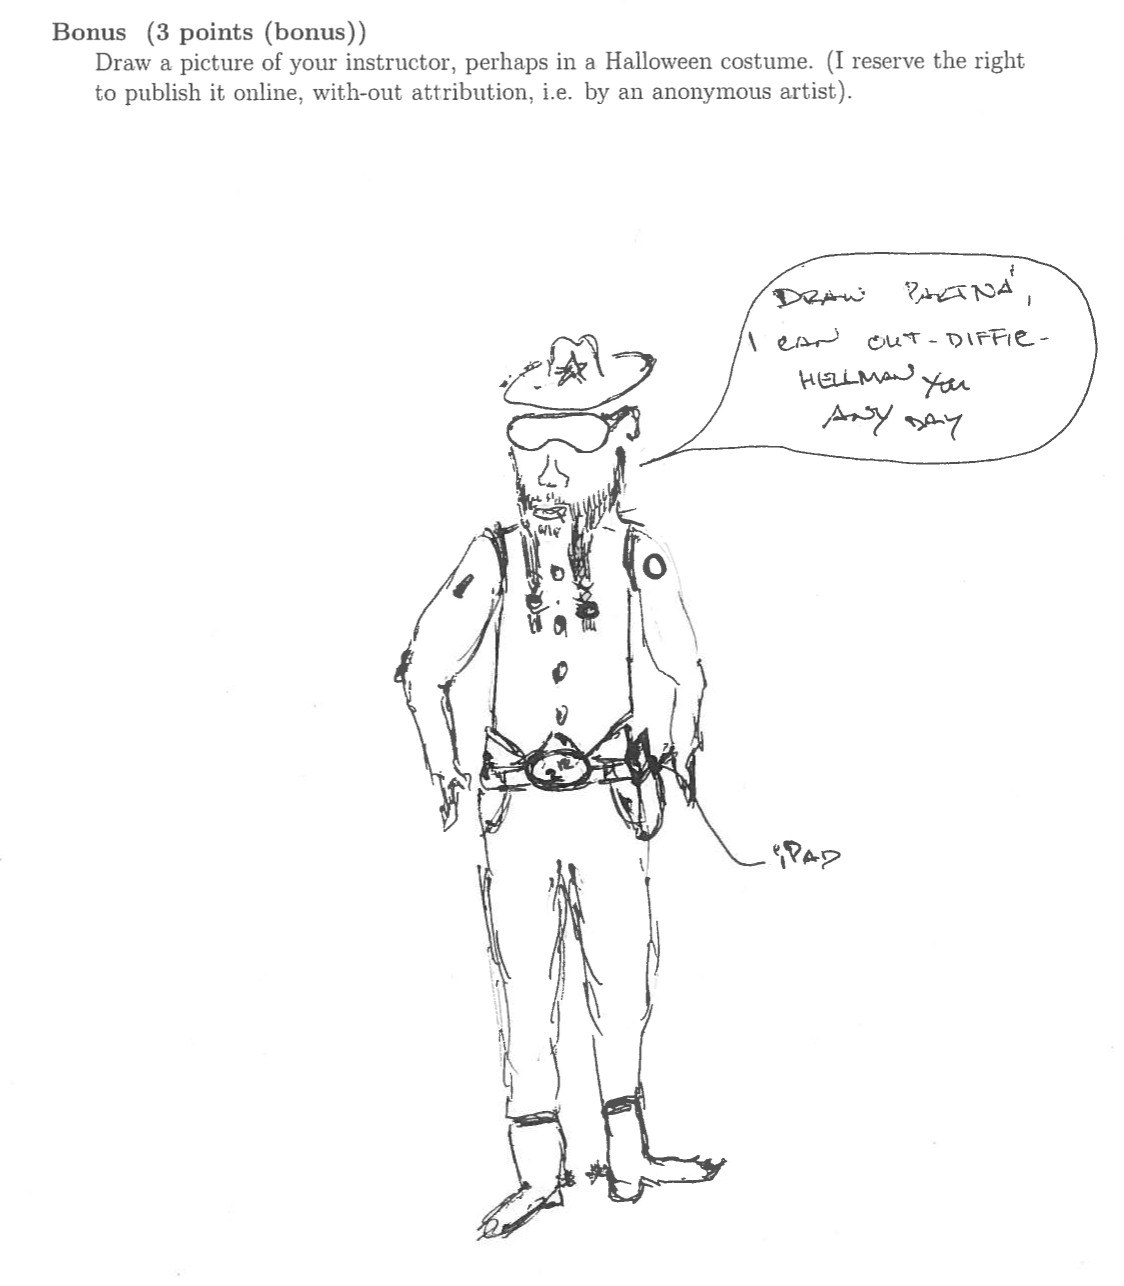 Bonus (3 points (bonus))
Draw a picture of your instructor, perhaps in a Halloween costume. (I reserve the right
to publish it online, with-out attribution, i.e. by an anonymous artist).
DRAW PARTNA',
I CAN OUT-DIFFIE-
HELLMAN YOU
ANY DAY
iPAD